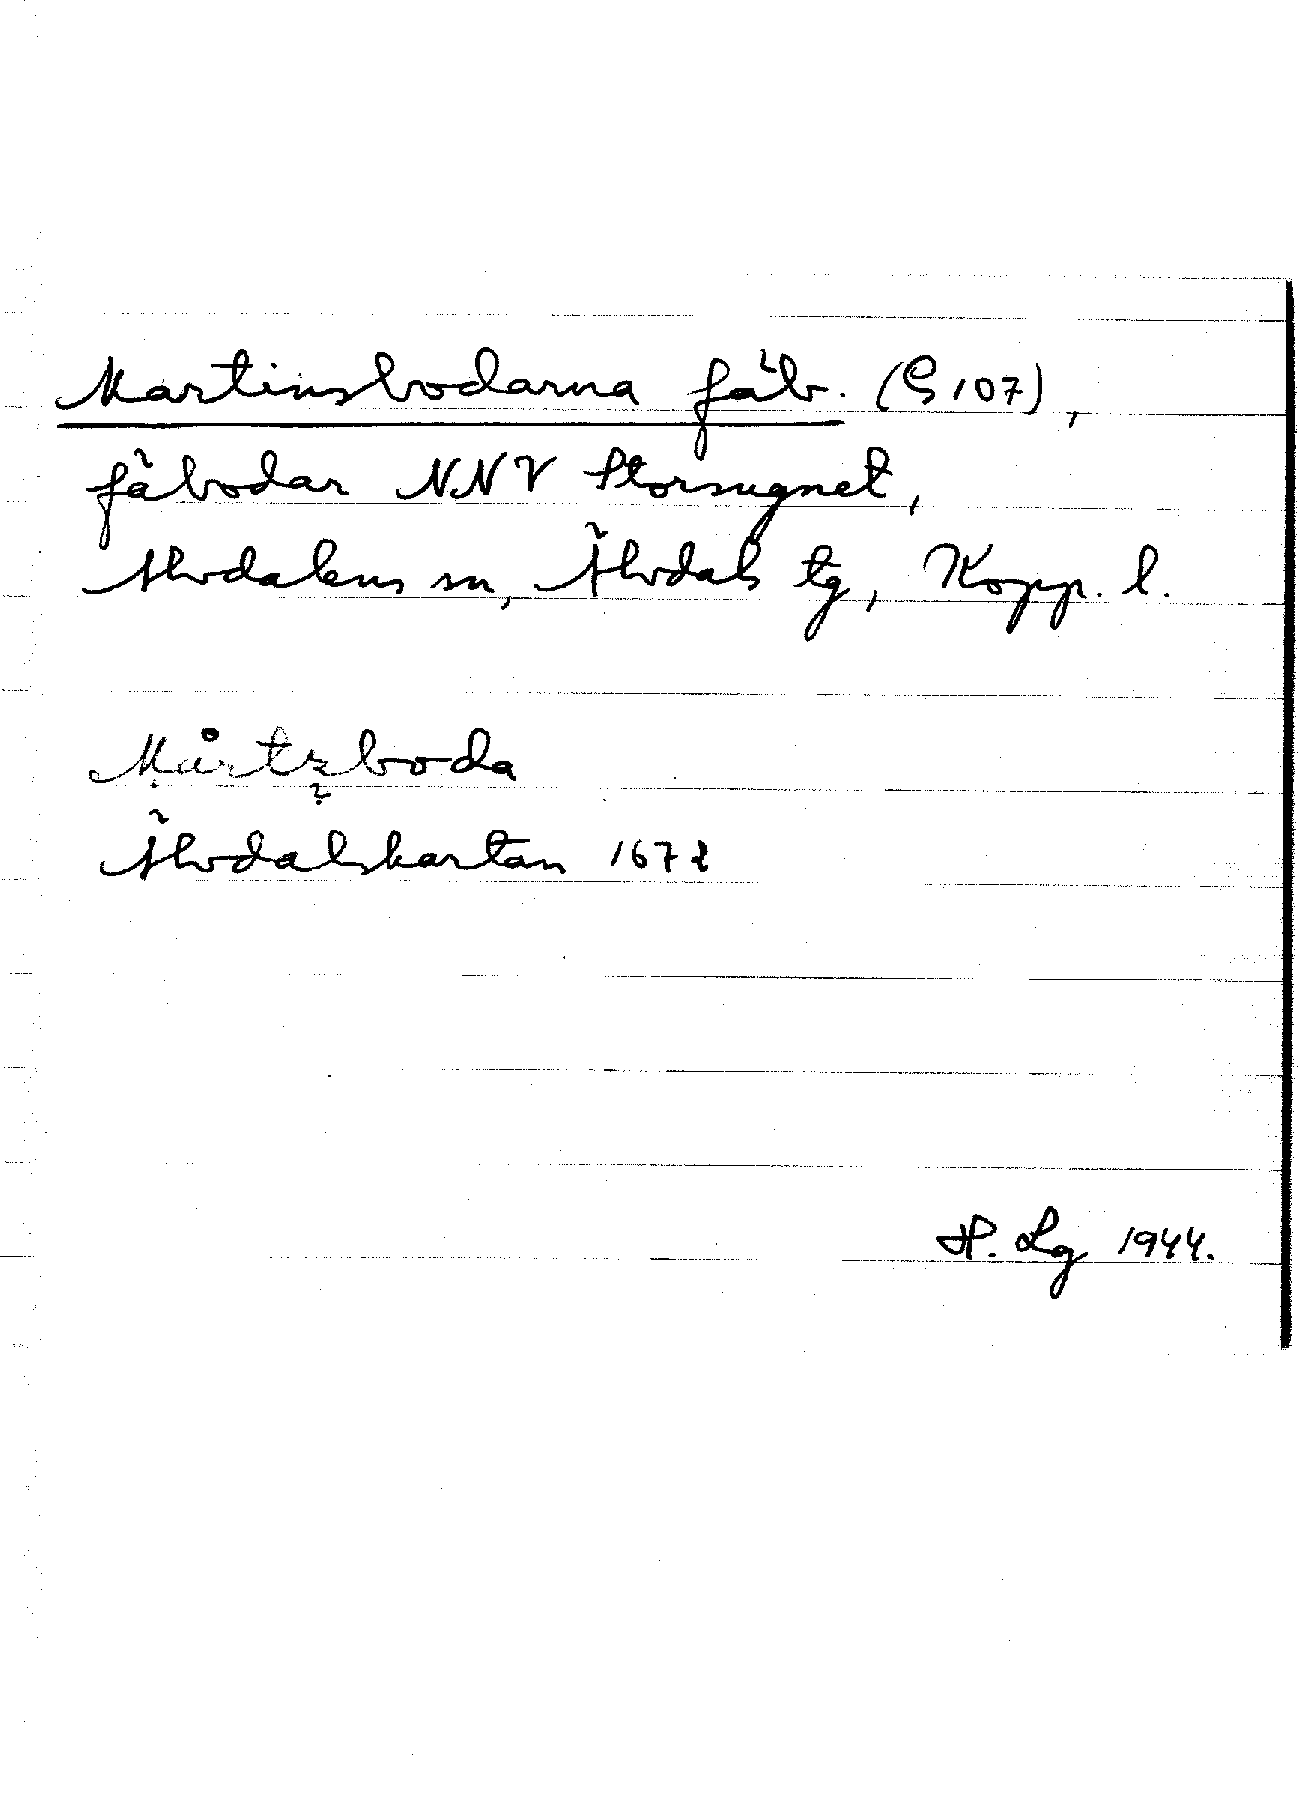 Martinsbodarna fäb. (G 107),
fäbodar NNV Storsugnet,
Älvdalens sn, Älvdals tg, Kopp. l.
Mårtzboda
Älvdalskartan 1672
H. Lg 1944.